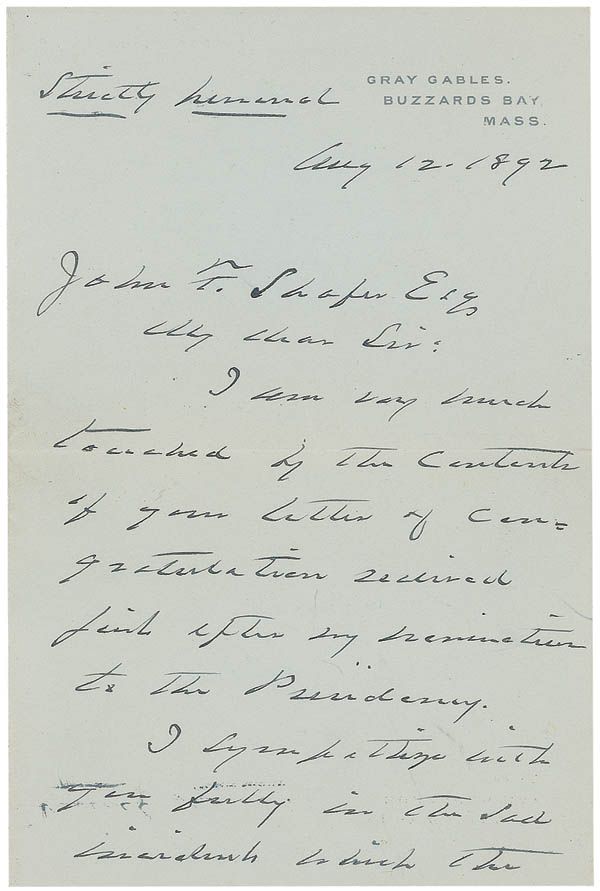 Strictly personal
GRAY GABLES.
BUZZARDS BAY,
MASS.
Aug 12. 1892
John F. Shafer Esq
My dear Sir:
I am very much
touched by the contents
of your letter of con=
gratulation received
just after my nomination
to the Presidency.
I sympathize with
you fully in the sad
incidents which the